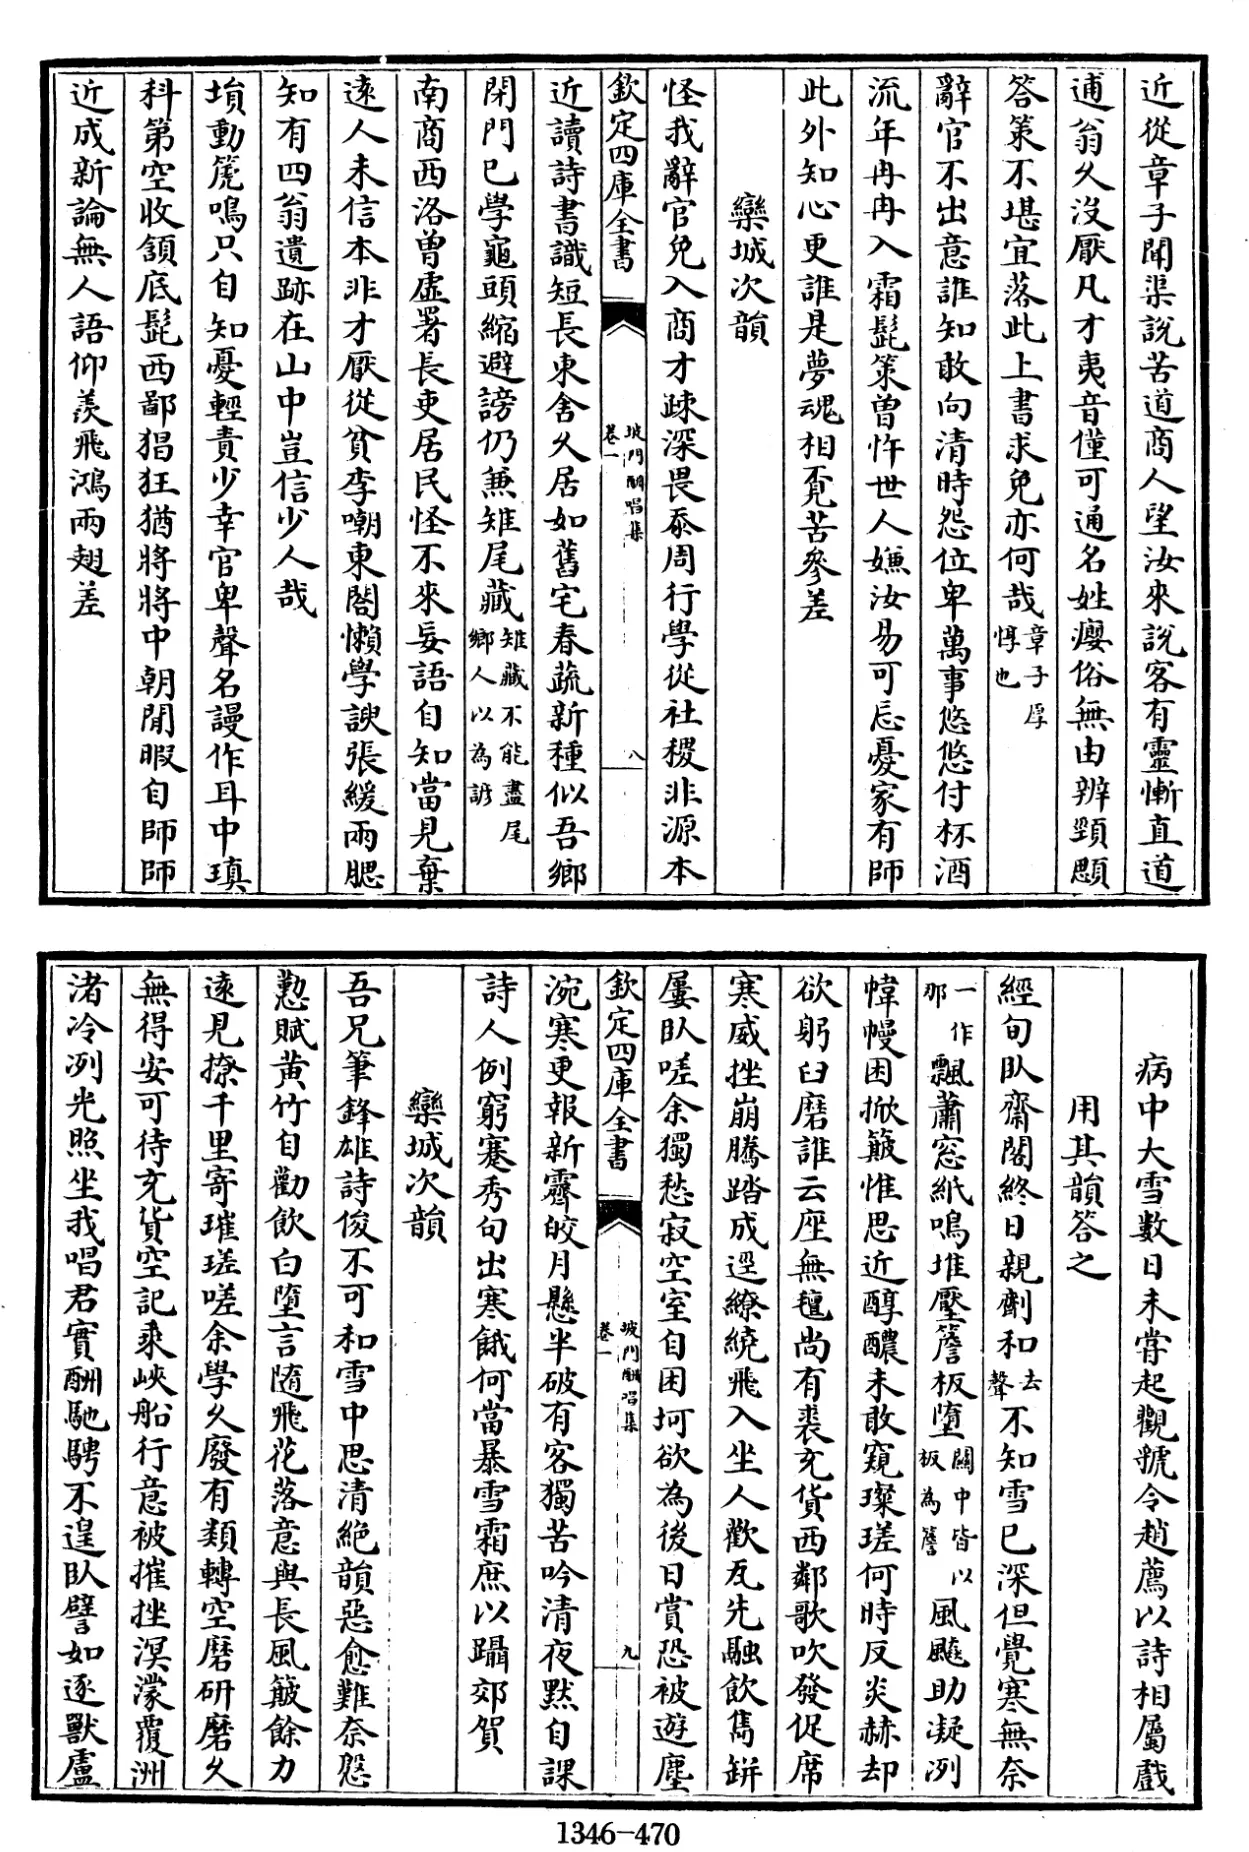 近從章子聞渠說苦道商人望汝來說客有靈慚直道
逋翁久沒厭凡才夷音僅可通名姓癭俗無由辨頸顋
答策不堪宜落此上書求免亦何哉章子厚惇也
辭官不出意誰知敢向清時怨位卑萬事悠悠付杯酒
流年冉冉入霜髭策曾忤世人嫌汝易可忘憂家有師
此外知心更誰是夢魂相覔苦參差
欒城次韻
怪我辭官免入商才疎深畏忝周行學從社稷非源本
欽定四庫全書
坡門酬唱集
卷一
八
近讀詩書識短長東舍久居如舊宅春蔬新種似吾鄉
閉門已學龜頭縮避謗仍兼雉尾藏雉藏不能盡尾鄉人以為諺
南商西洛曾虛署長吏居民怪不來妄語自知當見棄
遠人未信本非才厭從貧李嘲東閤懶學諛張緩兩腮
知有四翁遺跡在山中豈信少人哉
塤動篪鳴只自知憂輕責少幸官卑聲名謾作耳中瑱
科第空收頷底髭西鄙猖狂猶將將中朝閒暇自師師
近成新論無人語仰羨飛鴻兩翅差
病中大雪數日未嘗起觀虢令趙薦以詩相屬戲
用其韻答之
經旬臥齋閤終日親劑和去聲不知雪已深但覺寒無奈
一作那飄蕭窓紙鳴堆壓簷板墮關中皆以板為簷風飈助凝冽
幃幔困掀簸惟思近醇醲未敢窺璨瑳何時反炎赫却
欲躬臼磨誰云座無氊尚有裘充貨西鄰歌吹發促席
寒威挫崩騰踏成逕繚繞飛入坐人歡瓦先融飲雋缾
屢臥嗟余獨愁寂空室自困坷欲為後日賞恐被遊塵
欽定四庫全書
坡門酬唱集
卷一
九
涴寒更報新霽皎月懸半破有客獨苦吟清夜默自課
詩人例窮蹇秀句出寒餓何當暴雪霜庶以躡郊賀
欒城次韻
吾兄筆鋒雄詩俊不可和雪中思清絶韻惡愈難奈慇
懃賦黃竹自勸飲白墮言隨飛花落意與長風簸餘力
遠見撩千里寄璀瑳嗟余學久廢有類轉空磨研磨久
無得安可待充貨空記乘峽船行意被摧挫溟濛覆洲
渚冷冽光照坐我唱君實酬馳騁不遑臥譬如逐獸盧
1346-470